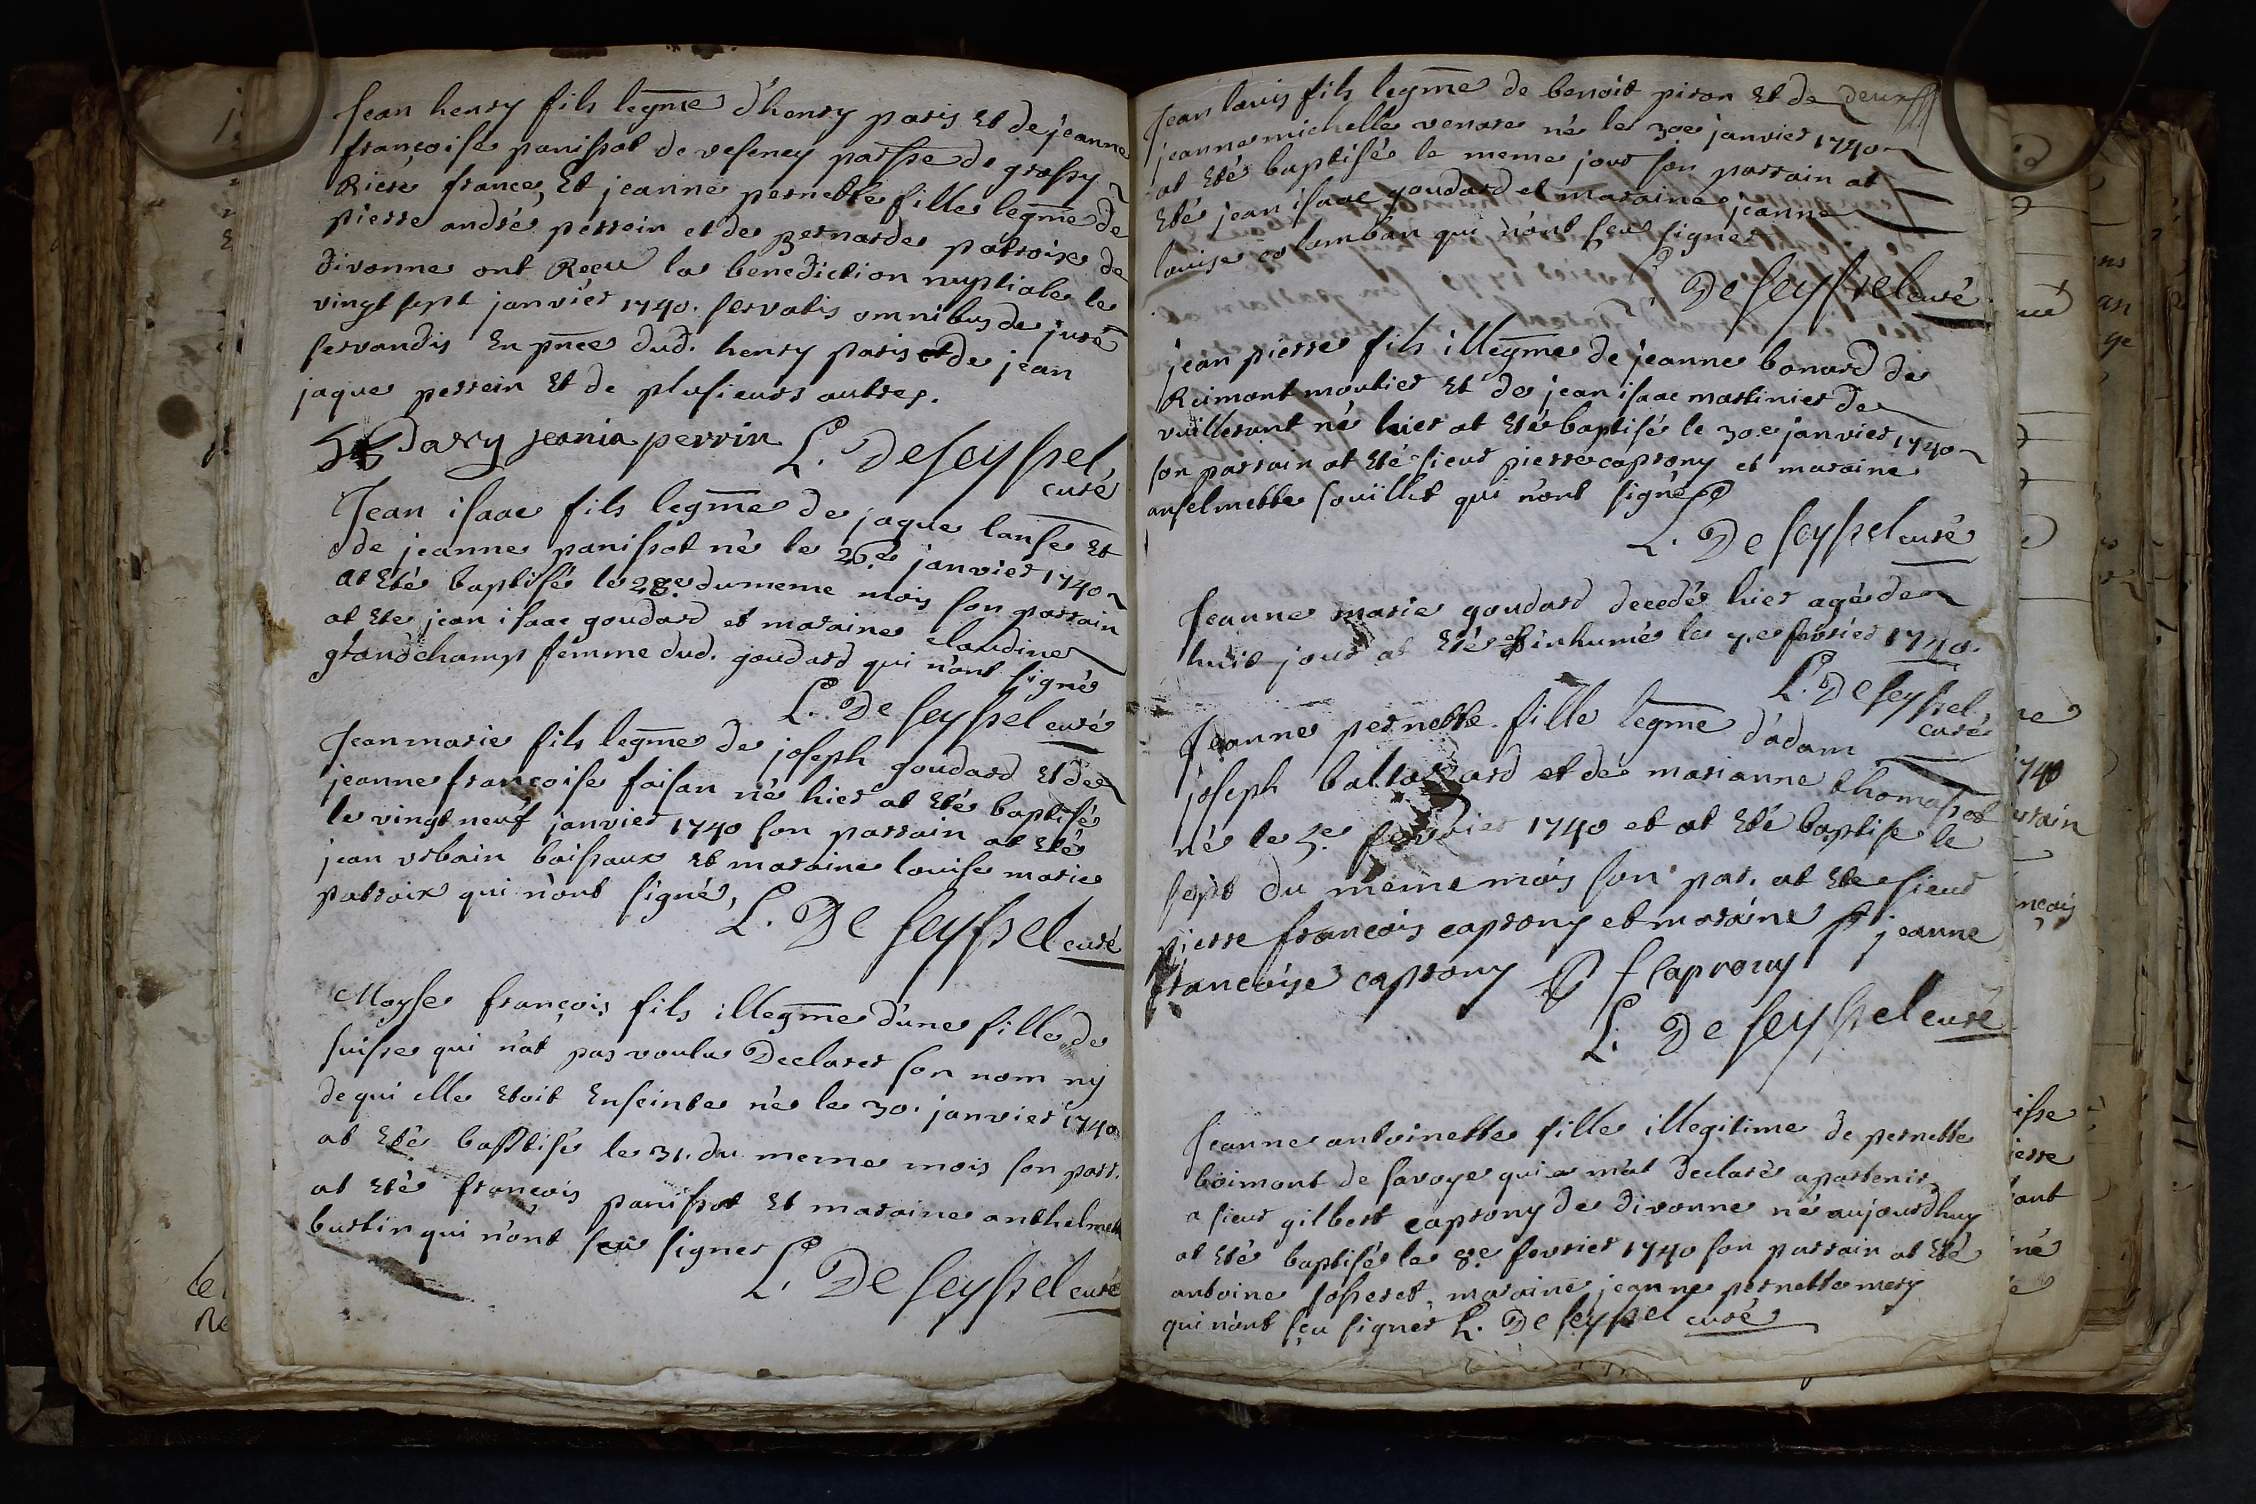 Jean henry fils legme d'henry paris Et de jeanne
françoise panissot de vesency parsse de grassy
Riere france, Et jeanne pernette fille legme de
pierre andré perrein et de bernarde patroix de
divonne ont Reçu la benediction nuptiale le
vingt sept janvier 1740. servatis omnibus de jure
servandis En pnce dud. henry paris et de jean
jaque perrein Et de plusieurs autres.
pary jeania perrin L. De seyssel
curé
Jean isaac fils legme de jaque lanse Et
de jeanne panissot né le 26e janvier 1740
at Eté baptisé le 28e du meme mois son parrain
at Ete jean isaac goudard et maraine claudine
grandchamp femme dud. goudard qui n'ont signé
L. De seyssel curé
Jean marie fils legme de joseph goudard Et de
jeanne françoise faisan né hier at Eté baptisé
le vingt neuf janvier 1740 son parrain at Eté
jean urbain boissaux et maraine louise marie
patroix qui n'ont signé,
L. De seyssel curé
Moyse françois fils illegme d'une fille de
suisse qui n'at pas voulu Declarer son nom ny
de qui elle Etoit Enseinte né le 30. janvier 1740
at Eté baptisé le 31. du meme mois son parr.
at Eté françois panissot Et maraine anthelmette
burtin qui n'ont sçu signer
L. De seyssel curé
Jean louis fils legme de benoit piron Et de deux
jeanne michelle venare né le 30e janvier 1740
at Eté baptisé le meme jour son parrain at
Eté jean isaac goudard et maraine jeanne
louise colomban qui n'ont sçu signer
De seyssel curé
jean pierre fils illegme de jeanne bonard de
Reimont moutier Et de jean isaac martinier de
vuillerant né hier at Eté baptisé le 30e janvier 1740
son parrain at Eté sieur pierre caprony et maraine
anselmette souillet qui n'ont signé
L. De seyssel curé
Jeanne marie goudard decedé hier agé de
huit jour at Eté inhumé le 4e fevrier 1740.
L. De seyssel
curé
Jeanne pernette fille legme d'adam
joseph baltazard et de marianne thomasset
né le 5e fevrier 1740 et at Eté baptisé le
sept du meme mois son par. at Ete sieur
pierre françois caprony et maraine jeanne
françoise caprony p f Caprony
L. De seyssel curé
Jeanne antoinette fille illegitime de pernette
boimont de savoye qui m'at declaré apartenir
a sieur gilbert caprony de divonne né aujourdhuy
at Eté baptisé le 8e fevrier 1740 son parrain at Eté
antoine josseret, maraine jeanne pernette mery
qui n'ont sçu signer L. De seyssel curé